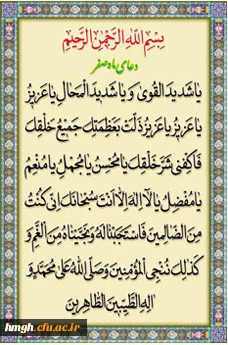 بِسْمِ اللهِ الرَّحْمٰنِ الرَّحيٖمِ
دعای ماه صفر
يا شَديدَ الْقُوىٰ وَ يا شَديدَ الْمِحالِ يا عَزيزُ
يا عَزيزُ يا عَزيزُ ذَلَّتْ بِعَظَمَتِكَ جَميعُ خَلْقِكَ
فَاكْفِنى شَرَّ خَلْقِكَ يا مُحْسِنُ يا مُجْمِلُ يا مُنْعِمُ
يا مُفْضِلُ يا لآاِلٰهَ اِلاّٰ اَنْتَ سُبْحانَكَ اِنّى كُنْتُ
مِنَ الظّالِمينَ فَاسْتَجَبْنا لَهُ وَ نَجَّيْناهُ مِنَ الْغَمِّ وَ
كَذٰلِكَ نُنْجِى الْمُؤْمِنينَ وَ صَلَّى اللهُ عَلىٰ مُحَمَّدٍ وَ
الِهِ الطَّيِّبينَ الطّاهِرينَ
hmgh.cfu.ac.ir